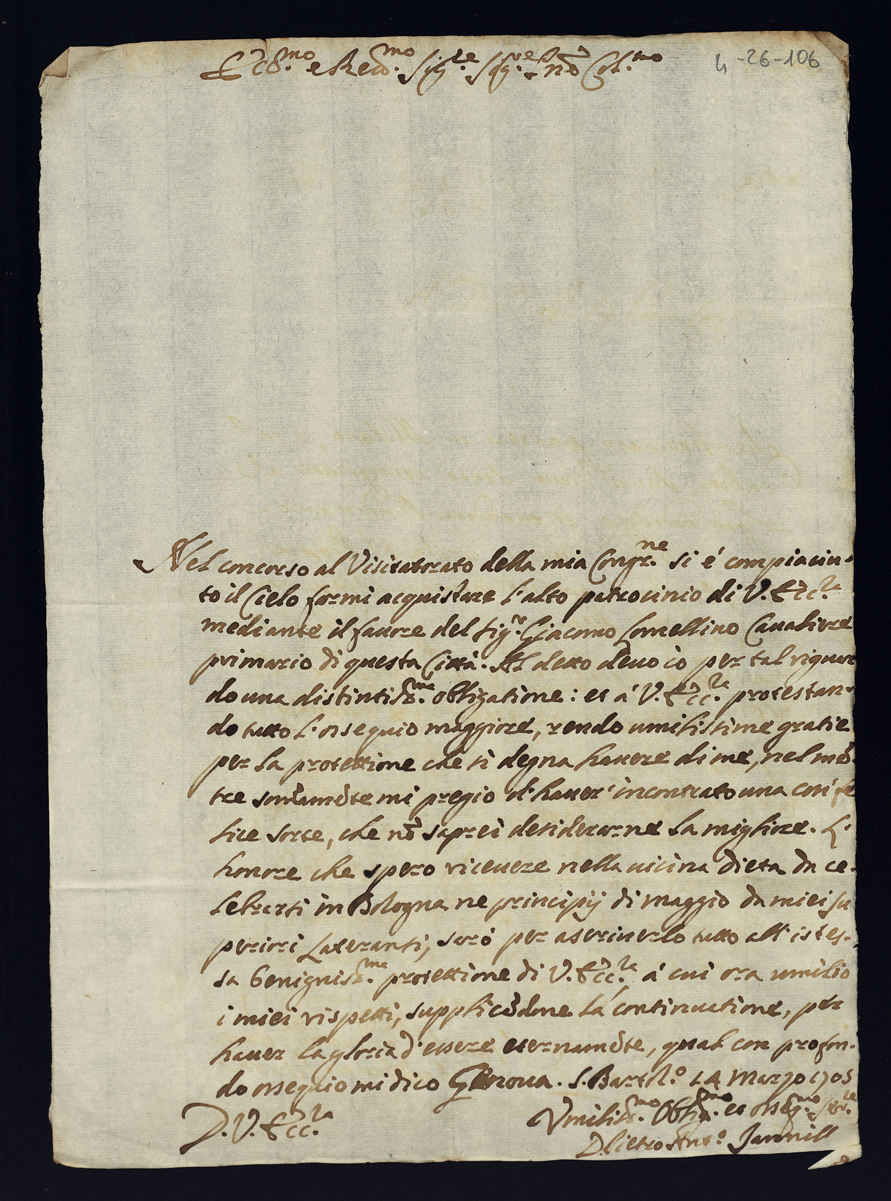 4-26-106
Ecc.mo e Reu.mo Sig.re Sig.re e Pñ Col.mo
Nel concorso al Visitatorato della mia Congr.ne si é compiaciu-
to il Cielo farmi acquistare l'alto patrocinio di V. Ecc.za
mediante il fauore del Sig.r Giacomo Lomellino Caualiere
primario di questa Città. Al detto deuo io per tal riguar
do una distintiss.ma obligatione: et á V. Ecc.za protestan-
do tutto l'ossequio maggiore, rendo umilissime gratie
per la protettione che si degna hauere di me, nel mẽ
tre som̃amẽte mi pregio d'hauer' incontrato una cosí fe
lice sorte, che nõ saprei desiderarne la migliore. L'
honore che spero riceuere nella uicina dieta da ce-
lebrarsi in Bologna ne principij di maggio da miei su
periori Lateranẽsi, seró per ascriuerlo tutto all'istes-
sa benigniss.ma protettione di V. Ecc.za á cui ora umilio
i miei rispetti, supplicãdone la continuatione, per
hauer la gloria d'essere eternamẽte, qual con profon-
do ossequio mi dico Genoua. S. Bartol.o 14 Marzo 1705
D. V. Ecc.za
Vmiliss.mo Oblig.mo et osseq.mo Ser.re
D. Pietro Ant.o